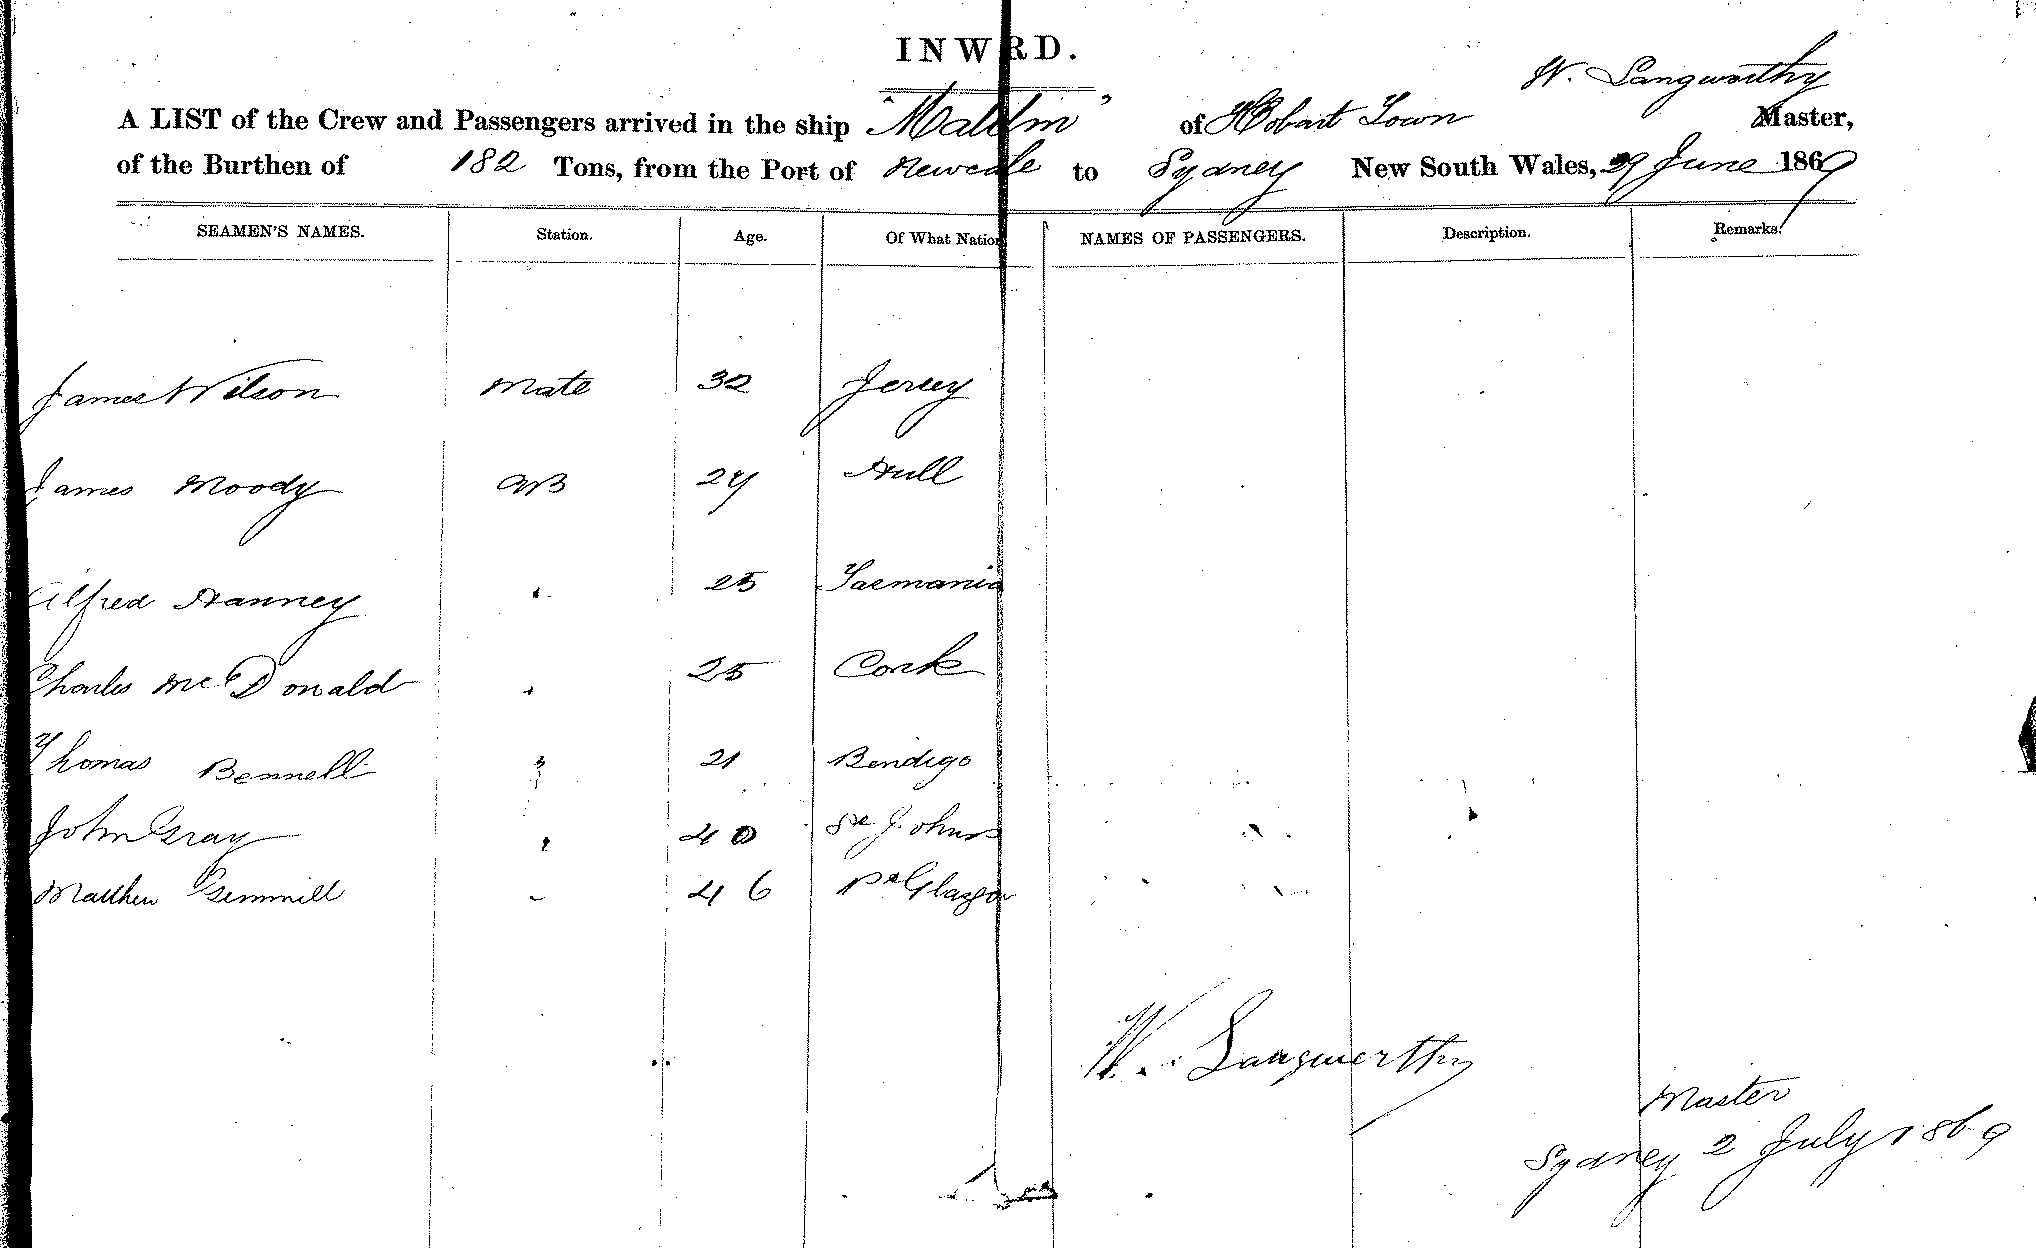 INWRD.
W. Langworthy
A LIST of the Crew and Passengers arrived in the ship "Maldin" of Hobart Town Master,
of the Burthen of 182 Tons, from the Port of Newcale to Sydney New South Wales, 29 June 1869
SEAMEN'S NAMES. Station. Age. Of What Nation NAMES OF PASSENGERS. Description. Remarks.
James Wilson Mate 32 Jersey
James Moody AB 24 Hull
Alfred Hanney " 25 Tasmania
Charles McDonald " 25 Cork
Thomas Bennell " 21 Bendigo
John Gray " 40 St Johns
Matthew Gemmill " 46 Pt Glasgow
W. Langworthy
Master
Sydney 2 July 1869